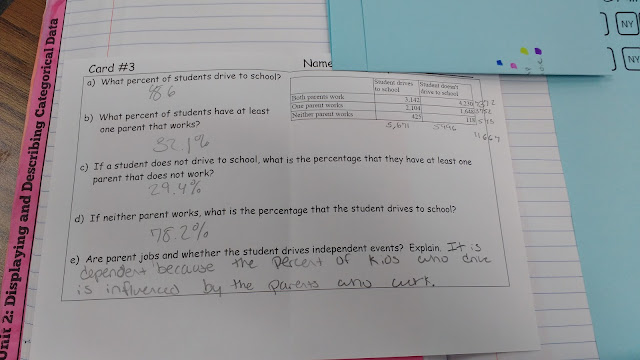 Unit 2: Displaying and Describing Categorical Data
Card #3
Name
NY
NY
a) What percent of students drive to school?
48.6
Student drives to school
Student doesn't drive to school
Both parents work 3,142 4,230
One parent works 2,104 1,648
Neither parent works 425 118
5,671
11667
b) What percent of students have at least
one parent that works?
32.1%
c) If a student does not drive to school, what is the percentage that they have at least one
parent that does not work?
29.4%
d) If neither parent works, what is the percentage that the student drives to school?
78.2%
e) Are parent jobs and whether the student drives independent events? Explain. It is
dependent because the percent of kids who drive
is influenced by the parents who work.